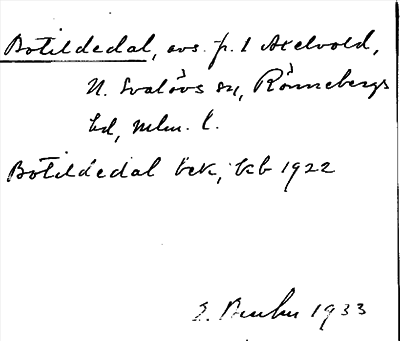 Botildedal, avs. fr. 1 Axelvold,
N. Svalövs sn, Rönnebergs
hd, Mlm. l.
Botildedal bek, kb 1922
1933